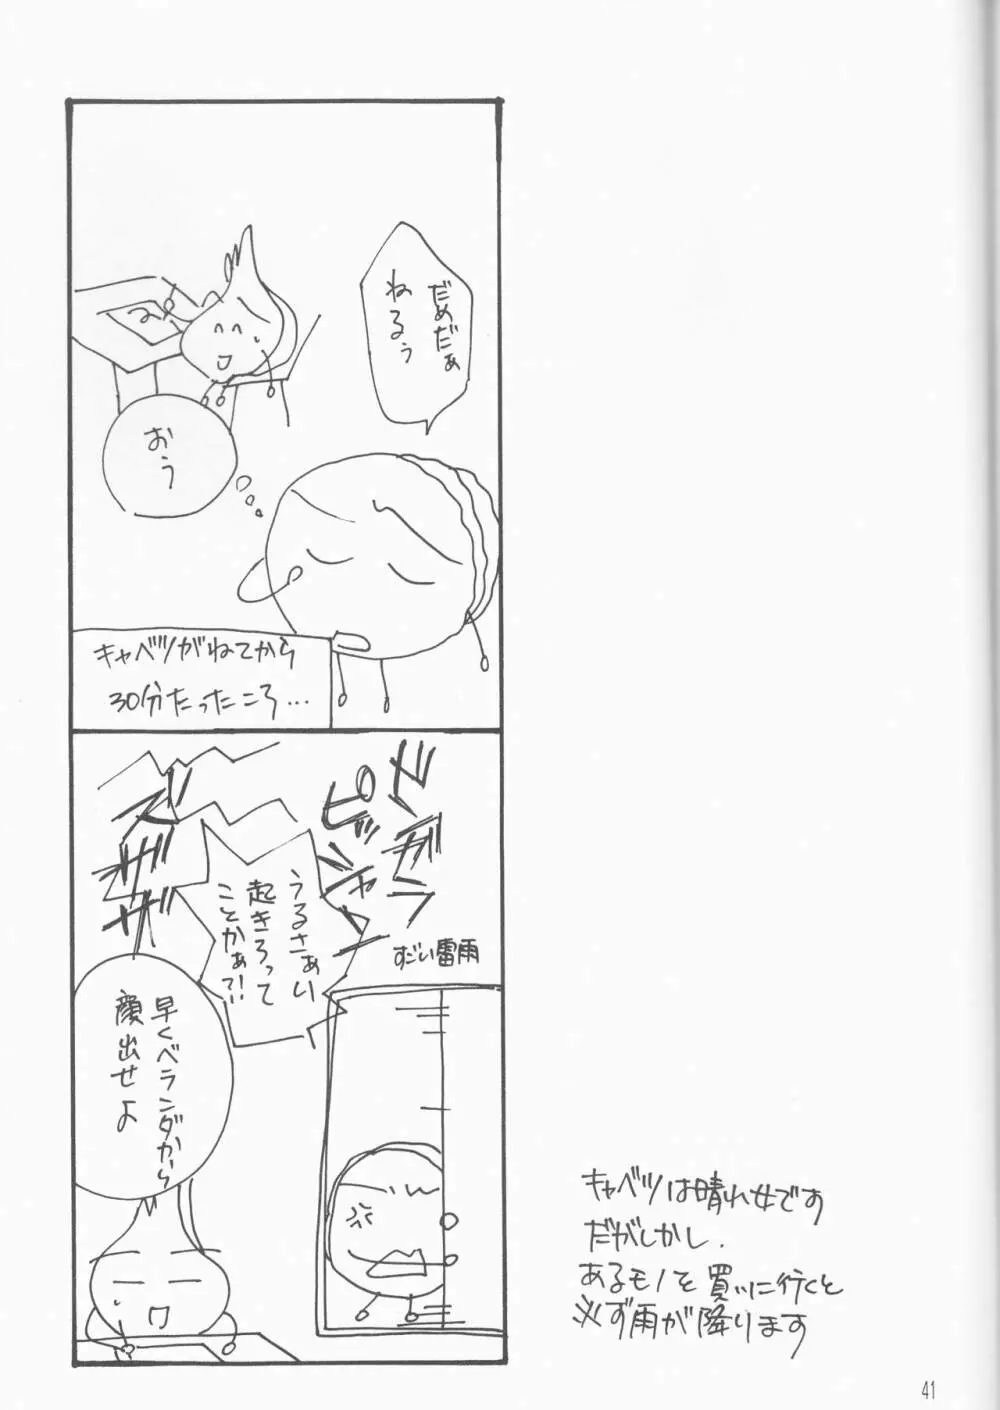 だめだぁ
ねるぅ
おう
キャベツがねてから
30分たったころ…
ドガラ
ピッシャ
ズザザ
すごい雷雨
うるさぁい
起きろって
ことかぁ?!
早くベランダから
顔出せよ
キャベツは晴れ女です
だがしかし.
あるモノを買いに行くと
必ず雨が降ります
41